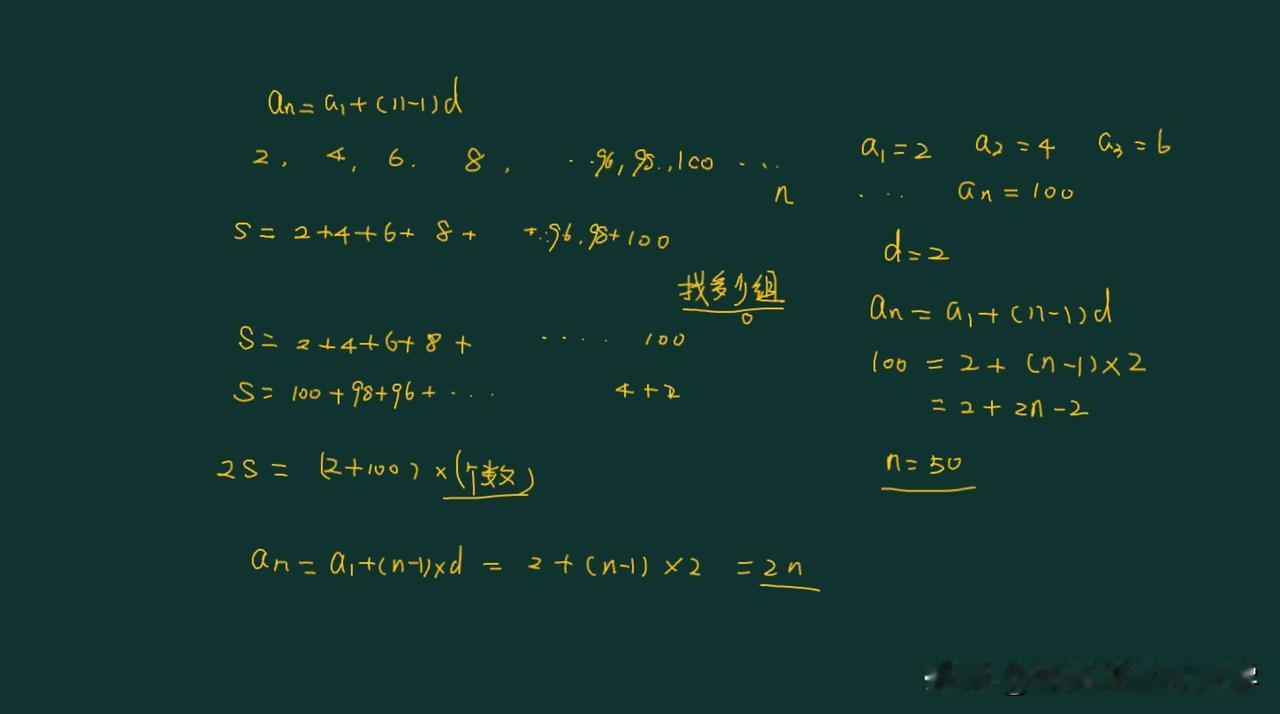 an = a1 + (n-1)d
2, 4, 6. 8, ..96, 98.,100 ...
n
S = 2+4+6+ 8+ +..96.98+100
找多少组
S = 2+4+6+8+ .... 100
S = 100+98+96+... 4+2
2S = (2+100) × (个数)
an = a1+(n-1)×d = 2+(n-1)×2 = 2n
a1=2 a2=4 a3=6
... an=100
d=2
an = a1+(n-1)d
100 = 2+ (n-1)×2
= 2+2n-2
n=50